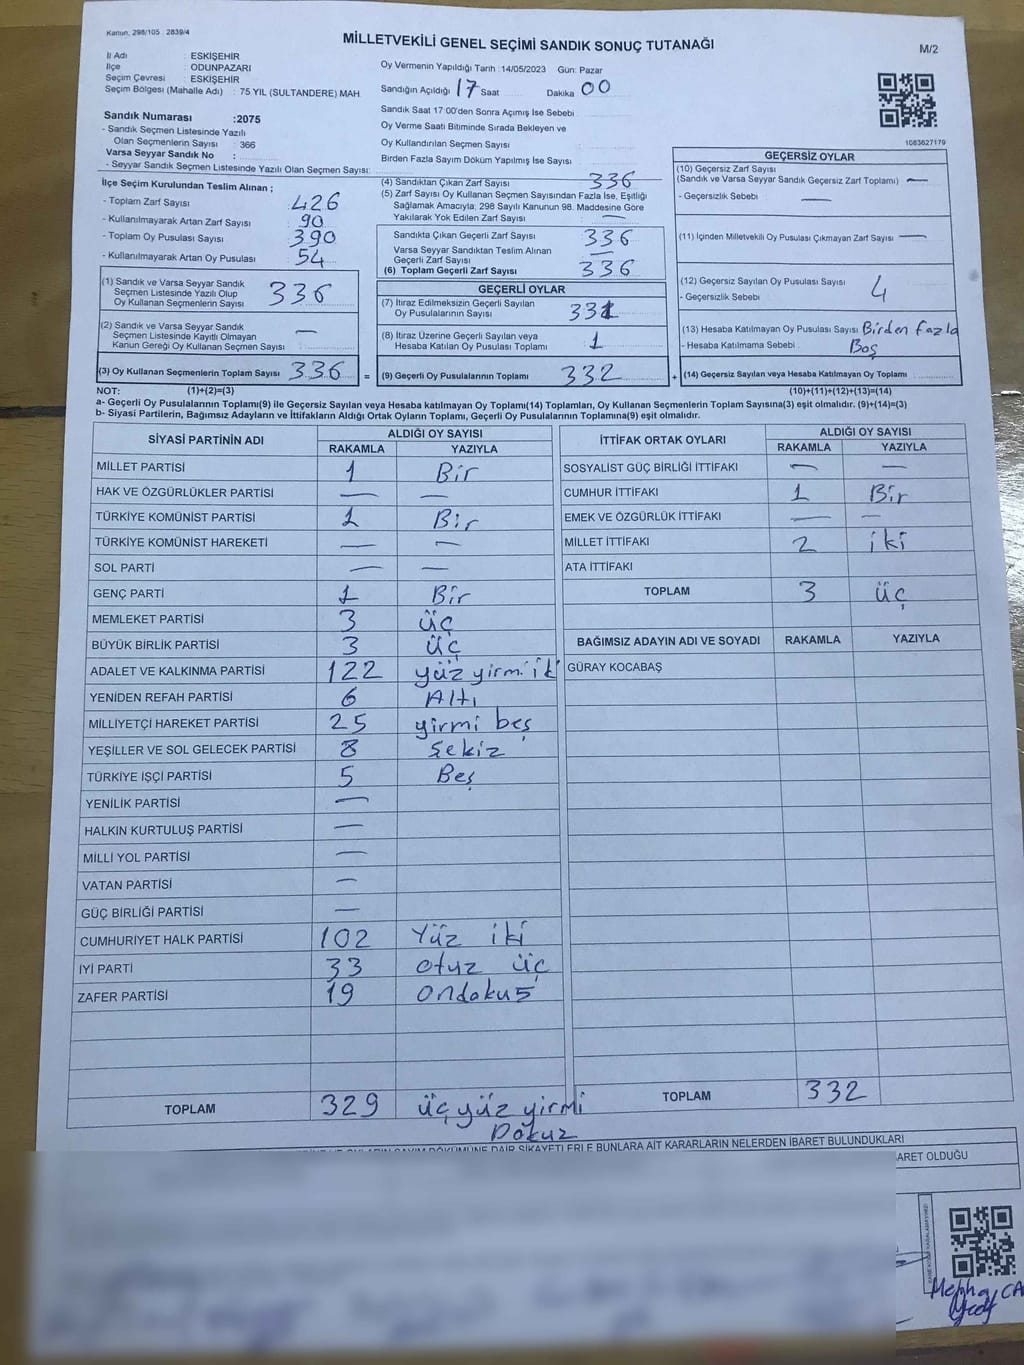 Kanun, 298/105 2839/4
MİLLETVEKİLİ GENEL SEÇİMİ SANDIK SONUÇ TUTANAĞI
M/2
İl Adı : ESKİŞEHİR
İlçe : ODUNPAZARI
Seçim Çevresi : ESKİŞEHİR
Seçim Bölgesi (Mahalle Adı) : 75 YIL (SULTANDERE) MAH.
Oy Vermenin Yapıldığı Tarih :14/05/2023 Gün: Pazar
Sandığın Açıldığı 17 Saat Dakika 00
Sandık Saat 17:00'den Sonra Açımış İse Sebebi
Oy Verme Saati Bitiminde Sırada Bekleyen ve
Oy Kullandırılan Seçmen Sayısı
Birden Fazla Sayım Döküm Yapılmış İse Sayısı
1083627179
Sandık Numarası :2075
- Sandık Seçmen Listesinde Yazılı
Olan Seçmenlerin Sayısı : 366
Varsa Seyyar Sandık No :
- Seyyar Sandık Seçmen Listesinde Yazılı Olan Seçmen Sayısı:
İlçe Seçim Kurulundan Teslim Alınan ;
- Toplam Zarf Sayısı 426
- Kullanılmayarak Artan Zarf Sayısı 90
- Toplam Oy Pusulası Sayısı 390
- Kullanılmayarak Artan Oy Pusulası 54
(1) Sandık ve Varsa Seyyar Sandık
Seçmen Listesinde Yazılı Olup
Oy Kullanan Seçmenlerin Sayısı 336
(2) Sandık ve Varsa Seyyar Sandık
Seçmen Listesinde Kayıtlı Olmayan
Kanun Gereği Oy Kullanan Seçmen Sayısı : —
(3) Oy Kullanan Seçmenlerin Toplam Sayısı 336 =
(4) Sandıktan Çıkan Zarf Sayısı 336
(5) Zarf Sayısı Oy Kullanan Seçmen Sayısından Fazla İse, Eşitliği
Sağlamak Amacıyla; 298 Sayılı Kanunun 98. Maddesine Göre
Yakılarak Yok Edilen Zarf Sayısı —
Sandıkta Çıkan Geçerli Zarf Sayısı 336
Varsa Seyyar Sandıktan Teslim Alınan
Geçerli Zarf Sayısı —
(6) Toplam Geçerli Zarf Sayısı 336
GEÇERLİ OYLAR
(7) İtiraz Edilmeksizin Geçerli Sayılan
Oy Pusulalarının Sayısı 331
(8) İtiraz Üzerine Geçerli Sayılan veya
Hesaba Katılan Oy Pusulası Toplamı 1
(9) Geçerli Oy Pusulalarının Toplamı 332 +
GEÇERSİZ OYLAR
(10) Geçersiz Zarf Sayısı
(Sandık ve Varsa Seyyar Sandık Geçersiz Zarf Toplamı) —
- Geçersizlik Sebebi —
(11) İçinden Milletvekili Oy Pusulası Çıkmayan Zarf Sayısı —
(12) Geçersiz Sayılan Oy Pusulası Sayısı 4
- Geçersizlik Sebebi
(13) Hesaba Katılmayan Oy Pusulası Sayısı Birden fazla
- Hesaba Katılmama Sebebi Boş
(14) Geçersiz Sayılan veya Hesaba Katılmayan Oy Toplamı
NOT: (1)+(2)=(3) (10)+(11)+(12)+(13)=(14)
a- Geçerli Oy Pusulalarının Toplamı(9) ile Geçersiz Sayılan veya Hesaba katılmayan Oy Toplamı(14) Toplamları, Oy Kullanan Seçmenlerin Toplam Sayısına(3) eşit olmalıdır. (9)+(14)=(3)
b- Siyasi Partilerin, Bağımsız Adayların ve İttifakların Aldığı Ortak Oyların Toplamı, Geçerli Oy Pusulalarının Toplamına(9) eşit olmalıdır.
SİYASİ PARTİNİN ADI ALDIĞI OY SAYISI
RAKAMLA YAZIYLA
MİLLET PARTİSİ 1 Bir
HAK VE ÖZGÜRLÜKLER PARTİSİ — —
TÜRKİYE KOMÜNİST PARTİSİ 1 Bir
TÜRKİYE KOMÜNİST HAREKETİ — —
SOL PARTİ — —
GENÇ PARTİ 1 Bir
MEMLEKET PARTİSİ 3 üç
BÜYÜK BİRLİK PARTİSİ 3 üç
ADALET VE KALKINMA PARTİSİ 122 yüz yirmi ik
YENİDEN REFAH PARTİSİ 6 Altı
MİLLİYETÇİ HAREKET PARTİSİ 25 yirmi beş
YEŞİLLER VE SOL GELECEK PARTİSİ 8 sekiz
TÜRKİYE İŞÇİ PARTİSİ 5 Beş
YENİLİK PARTİSİ —
HALKIN KURTULUŞ PARTİSİ —
MİLLİ YOL PARTİSİ —
VATAN PARTİSİ —
GÜÇ BİRLİĞİ PARTİSİ —
CUMHURİYET HALK PARTİSİ 102 Yüz iki
İYİ PARTİ 33 otuz üç
ZAFER PARTİSİ 19 ondokuz
TOPLAM 329 üç yüz yirmi
Dokuz
İTTİFAK ORTAK OYLARI ALDIĞI OY SAYISI
RAKAMLA YAZIYLA
SOSYALİST GÜÇ BİRLİĞİ İTTİFAKI — —
CUMHUR İTTİFAKI 1 Bir
EMEK VE ÖZGÜRLÜK İTTİFAKI — —
MİLLET İTTİFAKI 2 iki
ATA İTTİFAKI
TOPLAM 3 üç
BAĞIMSIZ ADAYIN ADI VE SOYADI RAKAMLA YAZIYLA
GÜRAY KOCABAŞ
TOPLAM 332
DÖKÜMÜNE DAİR ŞİKAYETLERLE BUNLARA AİT KARARLARIN NELERDEN İBARET BULUNDUKLARI
ARET OLDUĞU